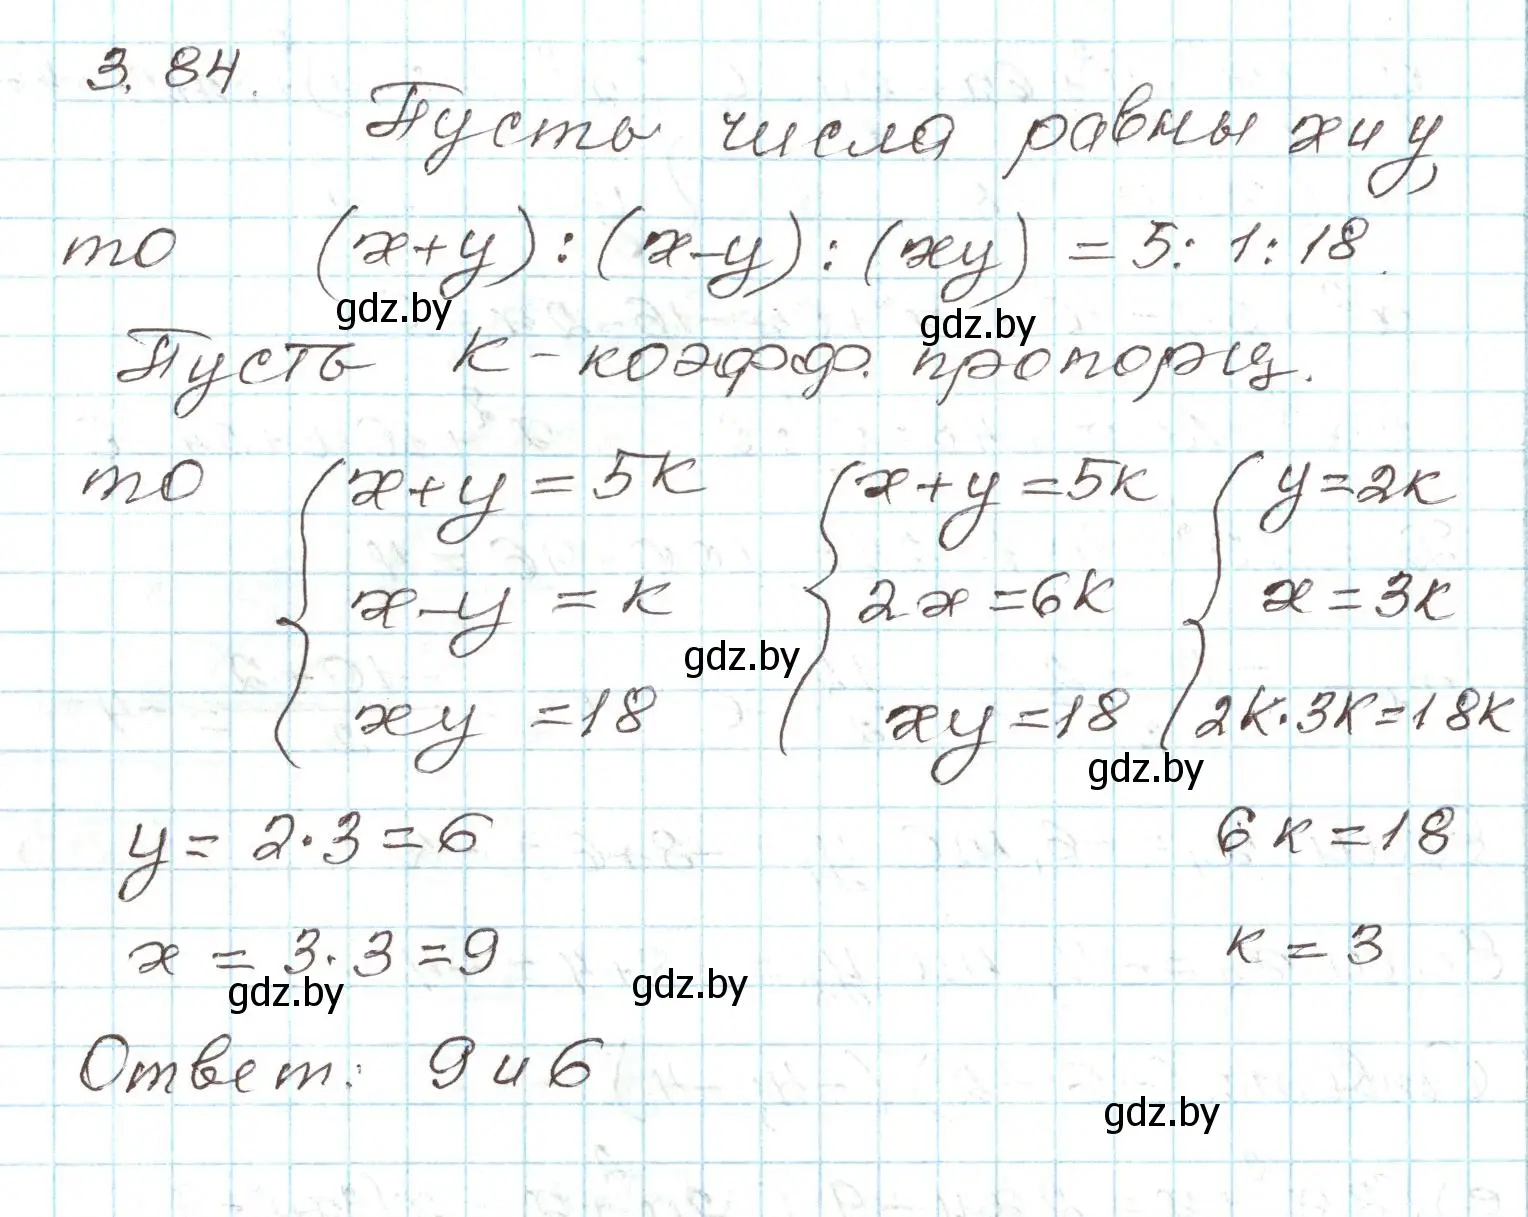 3.84.
Пусть числа равны x и y,
то (x+y) : (x-y) : (xy) = 5 : 1 : 18.
gdz.by gdz.by
Пусть k - коэфф. пропорц.
то { x+y = 5k { x+y = 5k { y = 2k
x-y = k 2x = 6k x = 3k
gdz.by
xy = 18 xy = 18 2k·3k = 18k
gdz.by
y = 2·3 = 6 6k = 18
x = 3·3 = 9 k = 3
gdz.by gdz.by
Ответ: 9 и 6
gdz.by